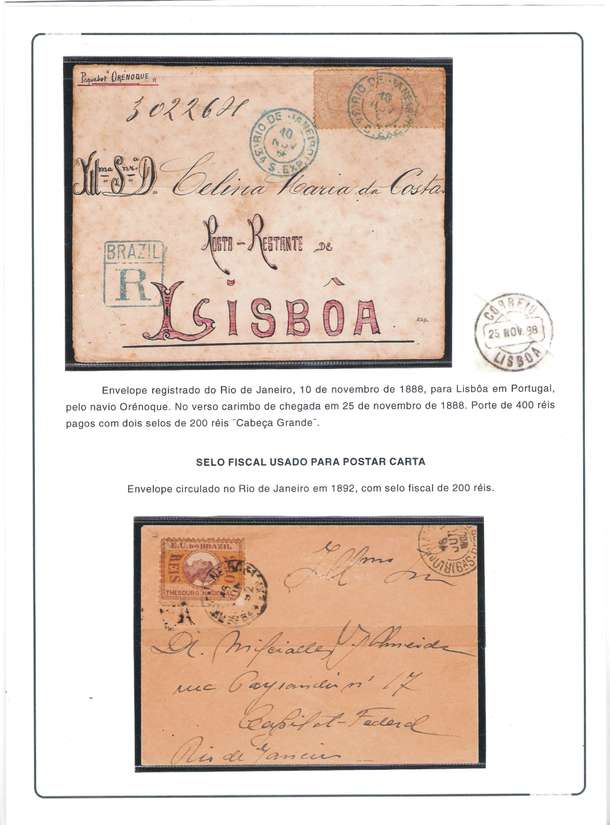 Paquebot "ORÉNOQUE"
30226H
RIO DE JANEIRO
10
NOV
S. EXP.
RIO DE JANEIRO
10
S. EXP.
Illma Snra D. Celina Maria da Costa
POSTA-RESTANTE DE
BRAZIL
R
LISBÔA
CORREIO
25 NOV. 88
LISBOA
Envelope registrado do Rio de Janeiro, 10 de novembro de 1888, para Lisbôa em Portugal,
pelo navio Orénoque. No verso carimbo de chegada em 25 de novembro de 1888. Porte de 400 réis
pagos com dois selos de 200 réis ¨Cabeça Grande¨.
SELO FISCAL USADO PARA POSTAR CARTA
Envelope circulado no Rio de Janeiro em 1892, com selo fiscal de 200 réis.
E.U. DO BRAZIL
REIS
REIS
THESOURO
Illmo Snr
Dr.
Almeida
rua Paysandú nº 17
Capital-Federal
Rio de Janeiro